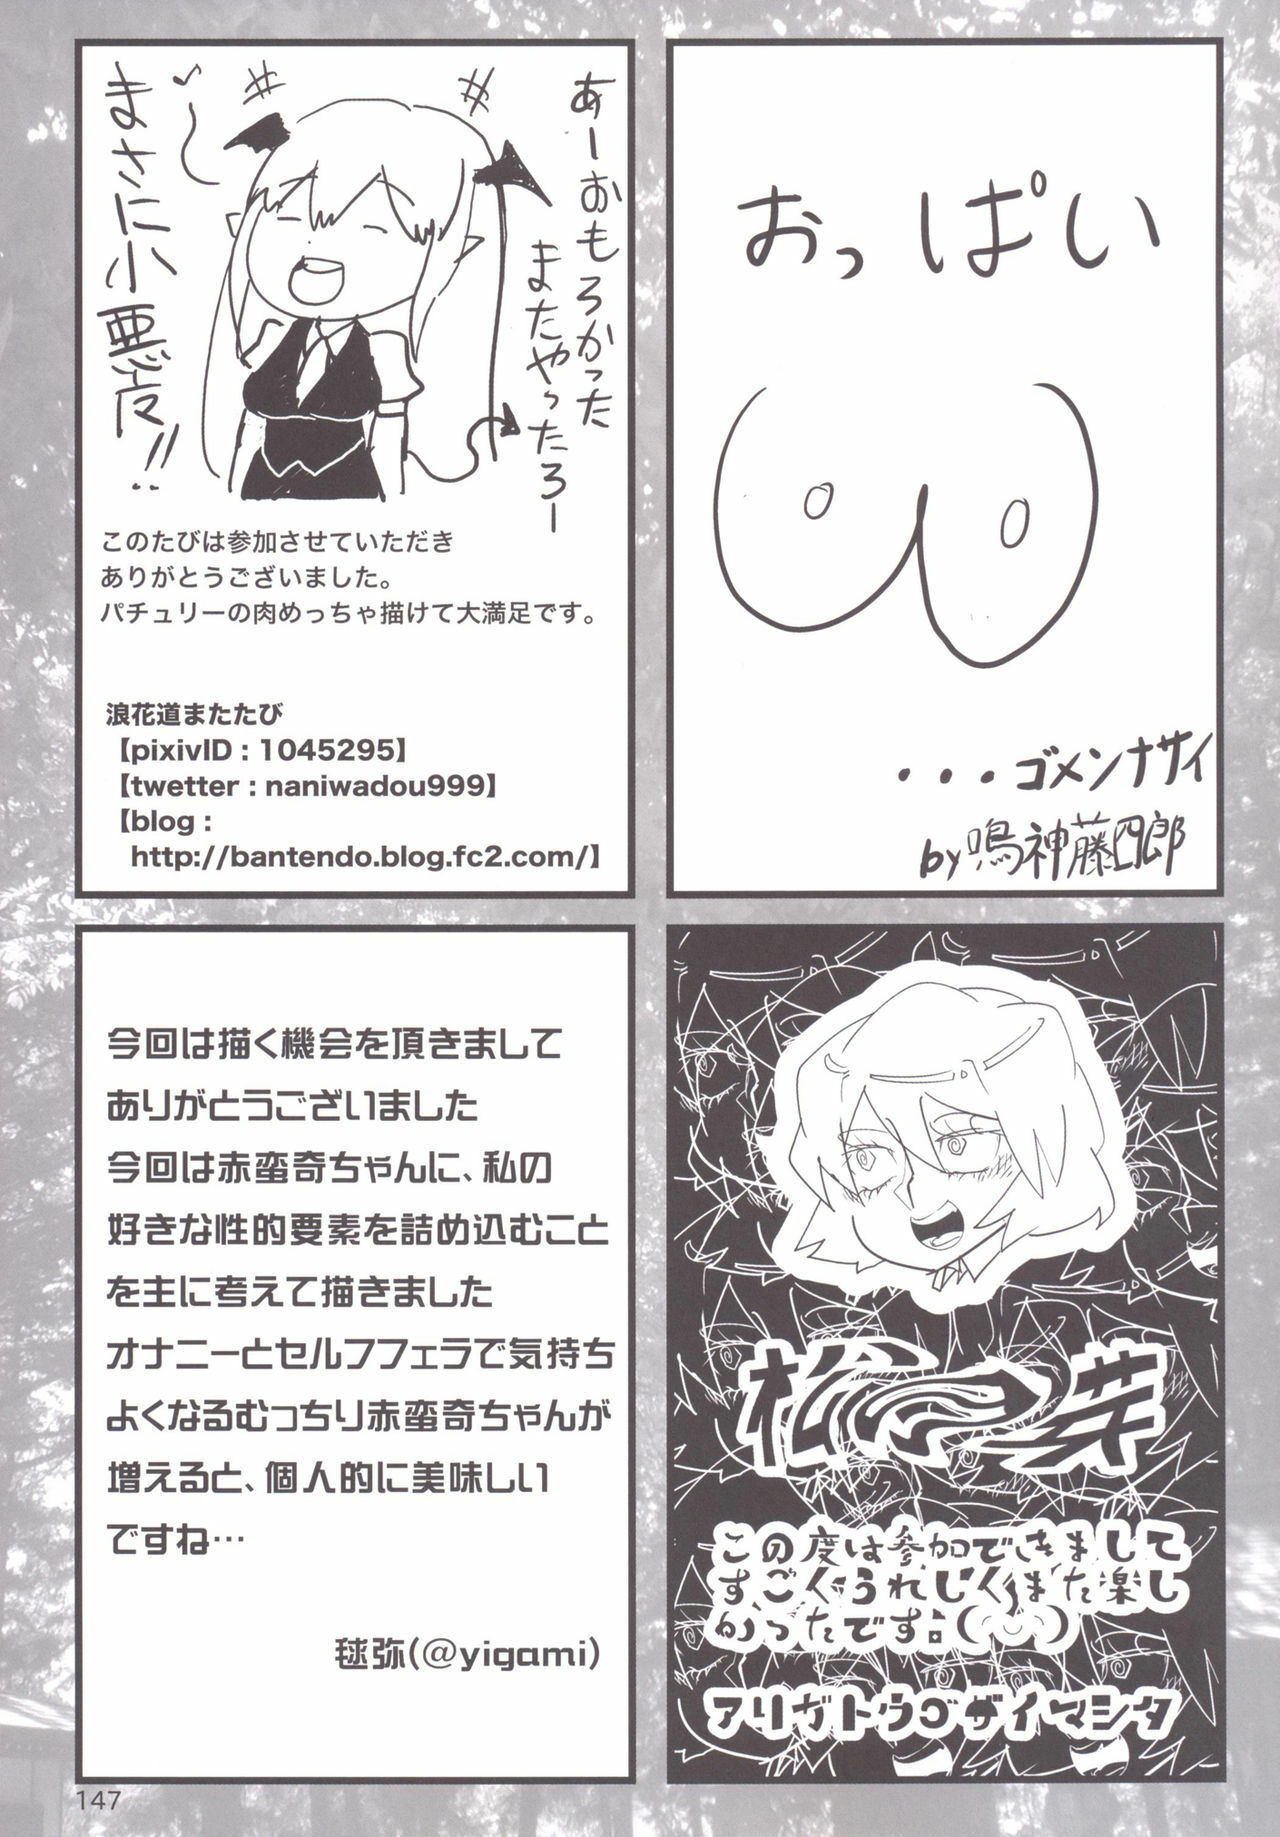 おっぱい
・・・ゴメンナサイ
by鳴神藤四郎
あーおもろかった
またやったろー
まさに小悪魔!!
このたびは参加させていただき
ありがとうございました。
パチュリーの肉めっちゃ描けて大満足です。
浪花道またたび
【pixivID : 1045295】
【twetter : naniwadou999】
【blog :
http://bantendo.blog.fc2.com/】
松芽
この度は参加できまして
すごくうれしくまた楽し
かったです:(◡‿◡)
アリガトウゴザイマシタ
今回は描く機会を頂きまして
ありがとうございました
今回は赤蛮奇ちゃんに、私の
好きな性的要素を詰め込むこと
を主に考えて描きました
オナニーとセルフフェラで気持ち
よくなるむっちり赤蛮奇ちゃんが
増えると、個人的に美味しい
ですね…
毬弥(@yigami)
147